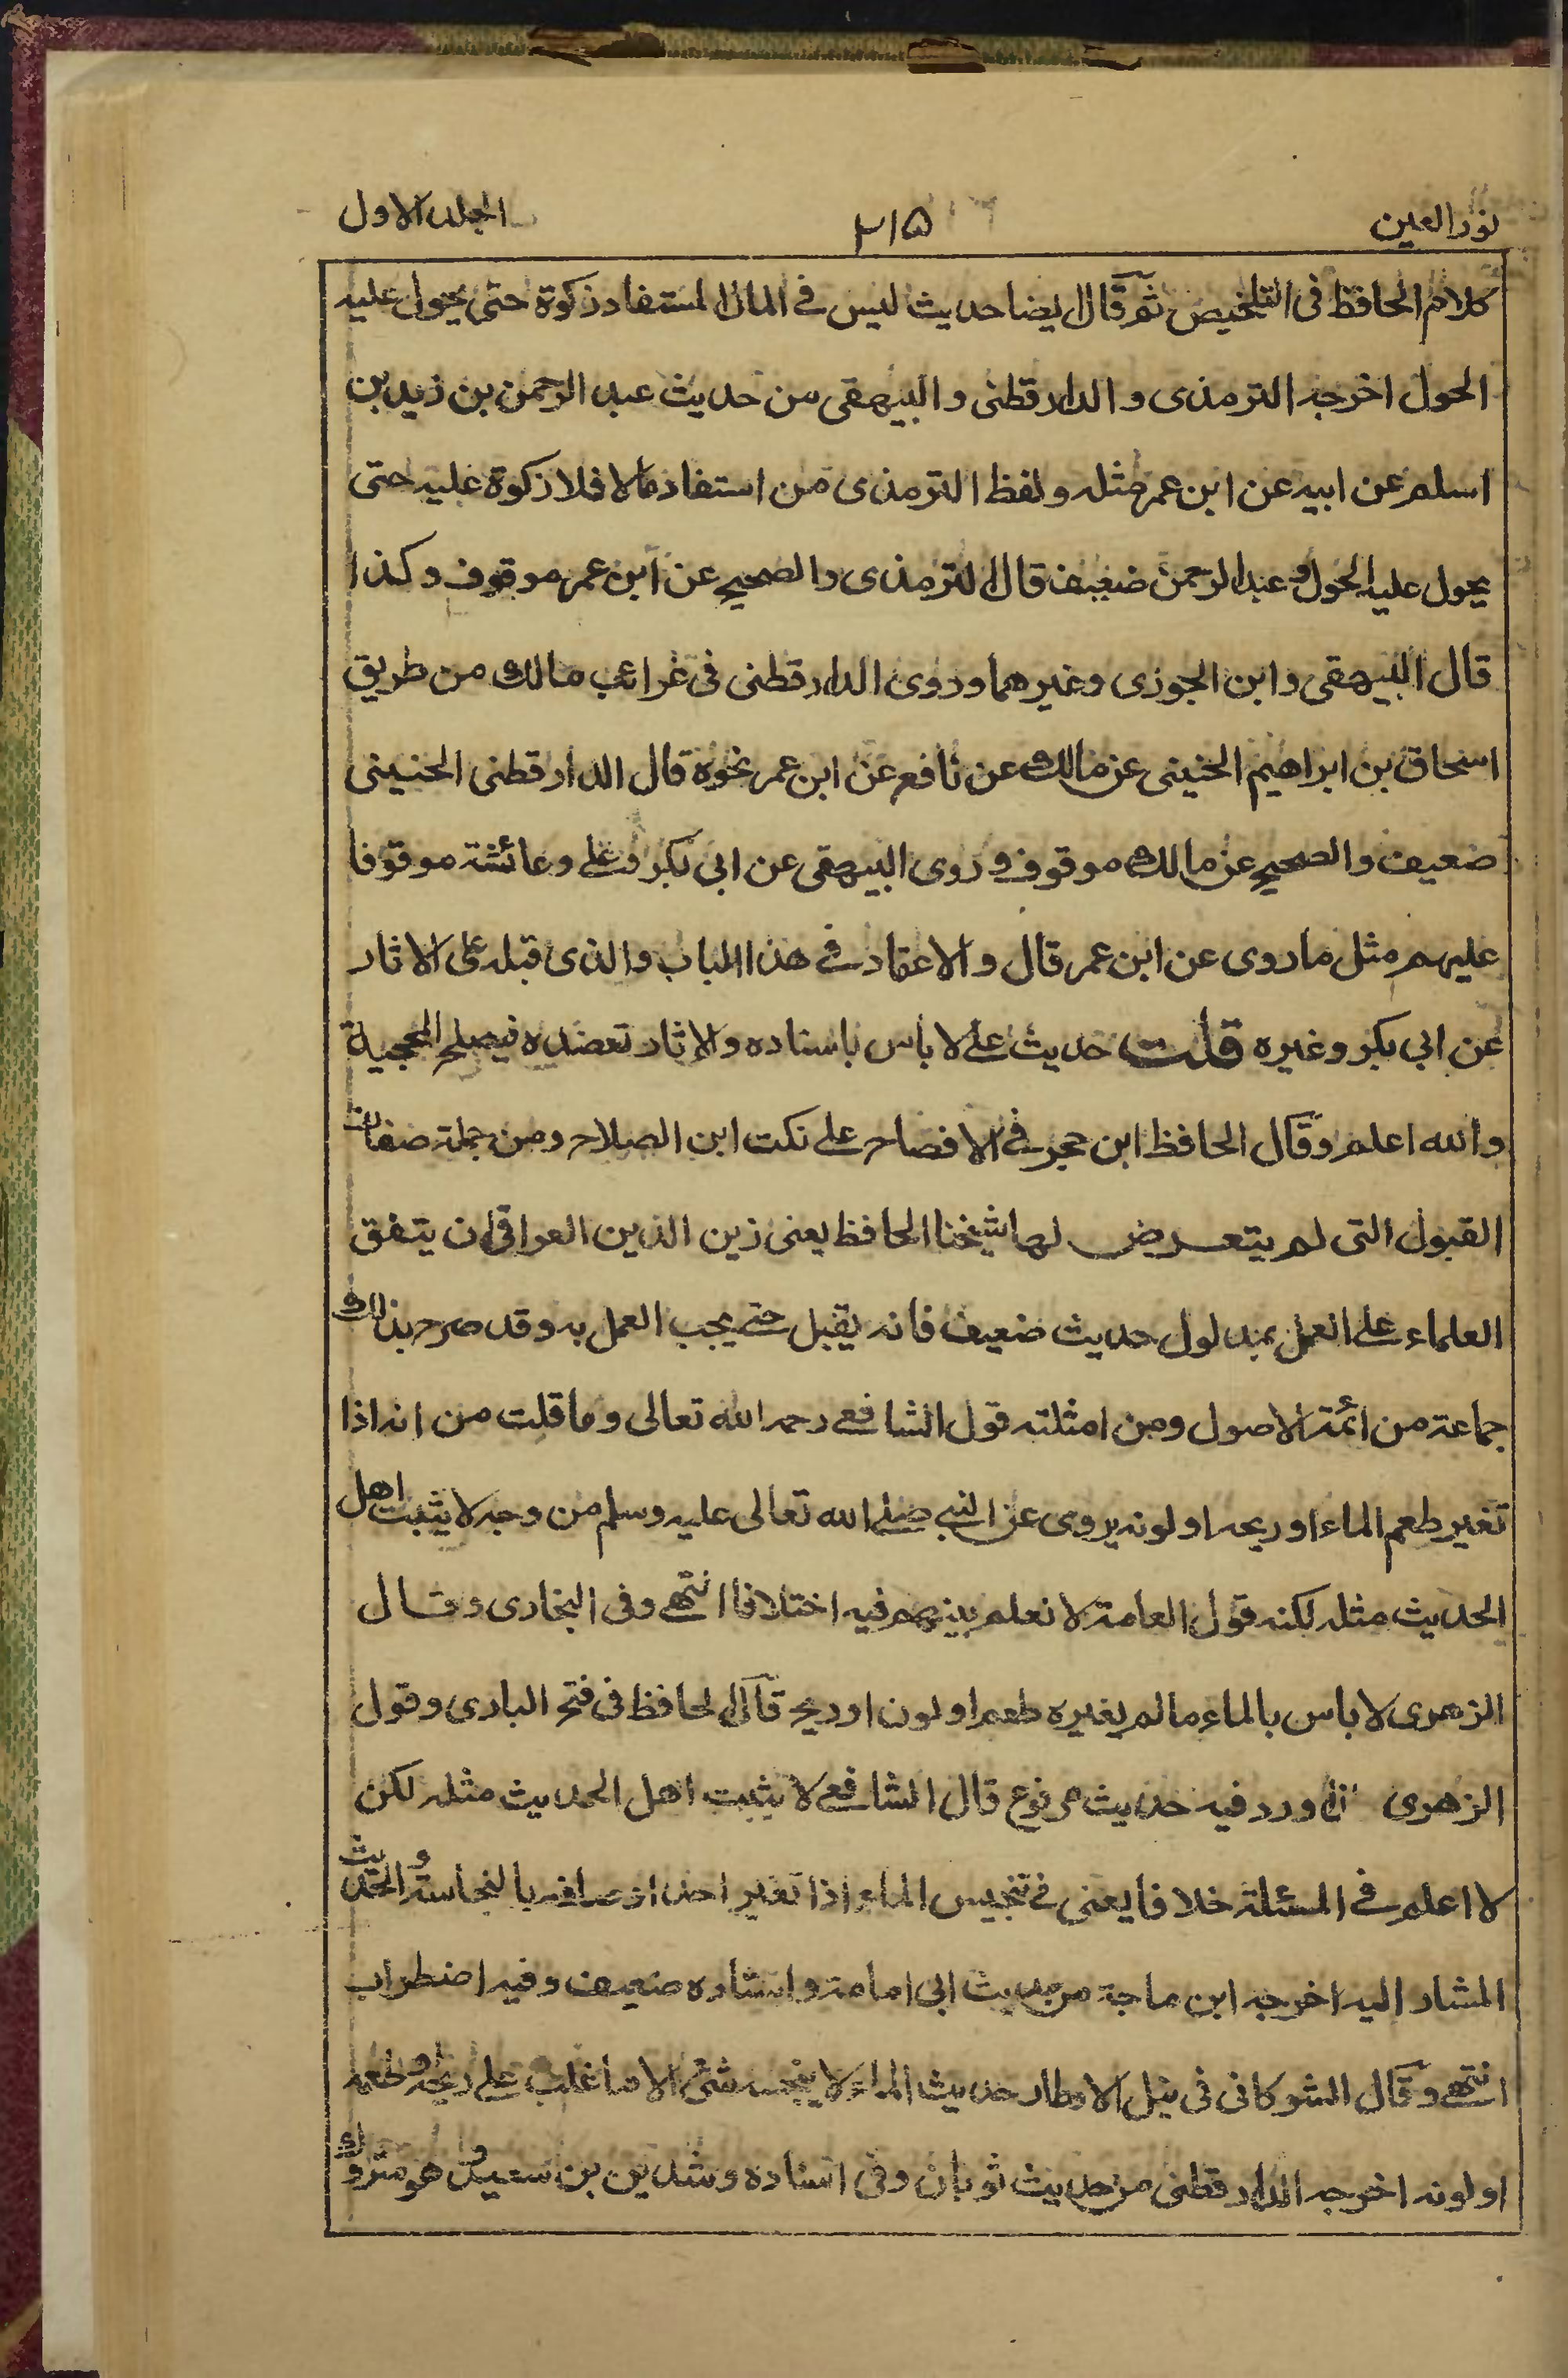 نور العين ٣١٥ الجلد الاول
كلام الحافظ فى التلخيص ثم قال ايضا حديث ليس فے المال المستفاد زكوة حتى يحول عليه
الحول اخرجه الترمذى والدارقطنى والبيهقى من حديث عبد الرحمن بن زيد بن
اسلم عن ابيه عن ابن عمر مثله ولفظ الترمذى من استفاد مالا فلا زكوة عليه حتى
يحول عليه الحول وعبد الرحمن ضعيف قال الترمذى والصحيح عن ابن عمر موقوف وكذا
قال البيهقى وابن الجوزى وغيرهما وروى الدارقطنى فى غرائب مالك من طريق
اسحاق بن ابراهيم الحنينى عن مالك عن نافع عن ابن عمر نحوه قال الدارقطنى الحنينى
ضعيف والصحيح عن مالك موقوف وروى البيهقى عن ابى بكر وعلے وعائشة موقوفا
عليهم مثل ما روى عن ابن عمر قال والاعتماد فے هذا الباب والذى قبله على الاثار
عن ابى بكر وغيره قلت حديث علے لا باس باسناده والاثار تعضده فيصلح للحجية
والله اعلم وقال الحافظ ابن حجر فے الافصاح علے نكت ابن الصلاح ومن جملة صفات
القبول التى لم يتعرض لها شيخنا الحافظ يعنى زين الدين العراقى ان يتفق
العلماء علے العمل بمدلول حديث ضعيف فانه يقبل حتے يجب العمل به وقد صرح بذلك
جماعة من ائمة الاصول ومن امثلته قول الشافعے رحمه الله تعالى وما قلت من انه اذا
تغير طعم الماء او ريحه او لونه يروى عن النبے صلے الله تعالى عليه وسلم من وجه لا يثبت اهل
الحديث مثله لكنه قول العامة لا نعلم بينهم فيه اختلافا انتهے وفى البخارى وقال
الزهرى لا باس بالماء ما لم يغيره طعم او لون او ريح قال الحافظ فى فتح البارى وقول
الزهرى ورد فيه حديث مرفوع قال الشافعے لا يثبت اهل الحديث مثله لكن
لا اعلم فے المسئلة خلافا يعنى فے تنجيس الماء اذا تغير احد اوصافه بالنجاسة والحديث
المشار اليه اخرجه ابن ماجة من حديث ابى امامة واسناده ضعيف وفيه اضطراب
انتهے وقال الشوكانى فى نيل الاوطار حديث الماء لا ينجسه شئ الا ما غلب علے ريحه وطعمه
او لونه اخرجه الدارقطنى من حديث ثوبان وفى اسناده رشدين بن سعد وهو متروك